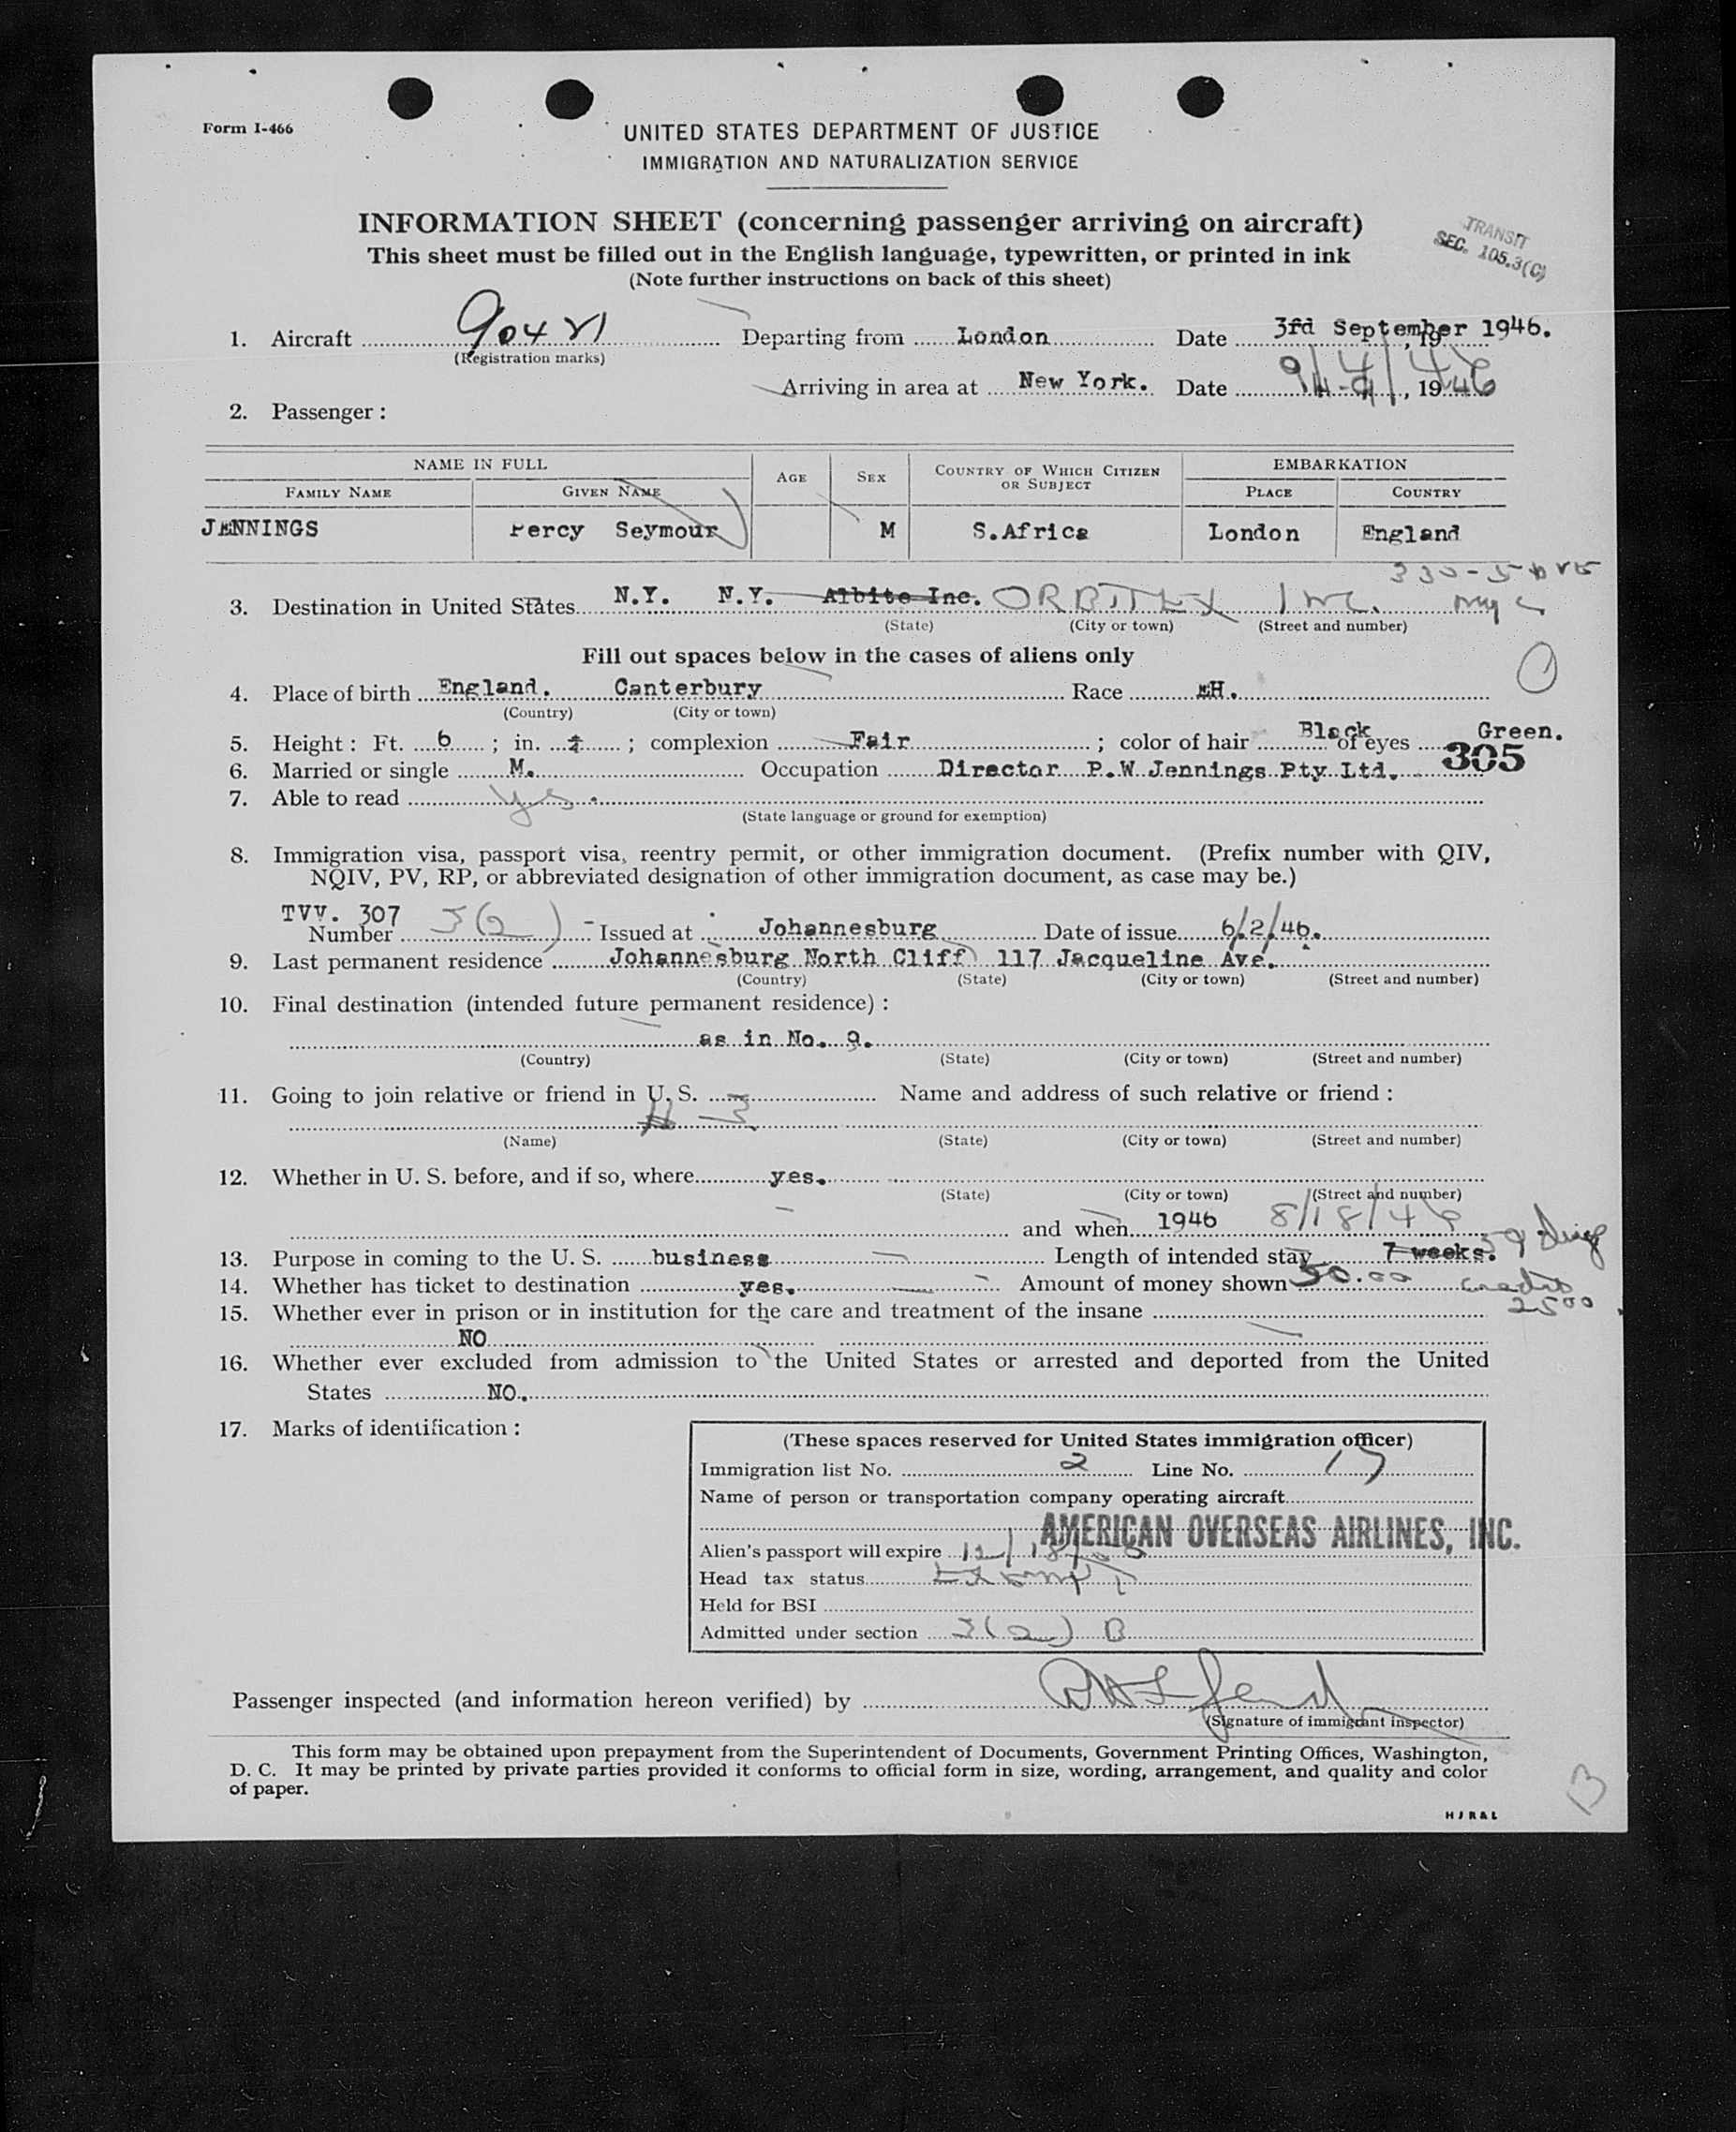 Form I-466
UNITED STATES DEPARTMENT OF JUSTICE
IMMIGRATION AND NATURALIZATION SERVICE
INFORMATION SHEET (concerning passenger arriving on aircraft)
This sheet must be filled out in the English language, typewritten, or printed in ink
(Note further instructions on back of this sheet)
TRANSIT
SEC. 105.3(C)
1. Aircraft Departing from London Date 3rd September 1946. , 19
(Registration marks)
Arriving in area at New York. Date 9/4/46 , 1946
2. Passenger :
NAME IN FULL AGE SEX COUNTRY OF WHICH CITIZEN OR SUBJECT EMBARKATION
FAMILY NAME GIVEN NAME PLACE COUNTRY
JENNINGS Percy Seymour M S.Africa London England
3. Destination in United States N.Y. N.Y. Albite Inc. ORBITEX Inc.
(State) (City or town) (Street and number)
Fill out spaces below in the cases of aliens only
4. Place of birth England. Canterbury Race EH.
(Country) (City or town)
5. Height : Ft. 6 ; in. ; complexion Fair ; color of hair Black of eyes Green.
6. Married or single M. Occupation Director P.W Jennings Pty Ltd. 305
7. Able to read yes.
(State language or ground for exemption)
8. Immigration visa, passport visa, reentry permit, or other immigration document. (Prefix number with QIV,
NQIV, PV, RP, or abbreviated designation of other immigration document, as case may be.)
TVV. 307
Number 3(2) Issued at Johannesburg Date of issue 6/2/46.
9. Last permanent residence Johannesburg North Cliff 117 Jacqueline Ave.
(Country) (State) (City or town) (Street and number)
10. Final destination (intended future permanent residence) :
as in No. 9.
(Country) (State) (City or town) (Street and number)
11. Going to join relative or friend in U. S. Name and address of such relative or friend :
# 3
(Name) (State) (City or town) (Street and number)
12. Whether in U. S. before, and if so, where yes.
(State) (City or town) (Street and number)
and when 1946 8/18/46
13. Purpose in coming to the U. S. business Length of intended stay 7 weeks. 59 days
14. Whether has ticket to destination yes. Amount of money shown 50.00 credit
2500
15. Whether ever in prison or in institution for the care and treatment of the insane
NO
16. Whether ever excluded from admission to the United States or arrested and deported from the United
States NO.
17. Marks of identification :
(These spaces reserved for United States immigration officer)
Immigration list No. 2 Line No. 17
Name of person or transportation company operating aircraft
AMERICAN OVERSEAS AIRLINES, INC.
Alien's passport will expire
Head tax status Exempt
Held for BSI
Admitted under section 3(2) B
Passenger inspected (and information hereon verified) by
(Signature of immigrant inspector)
This form may be obtained upon prepayment from the Superintendent of Documents, Government Printing Offices, Washington,
D. C. It may be printed by private parties provided it conforms to official form in size, wording, arrangement, and quality and color
of paper.
HJR&L
13